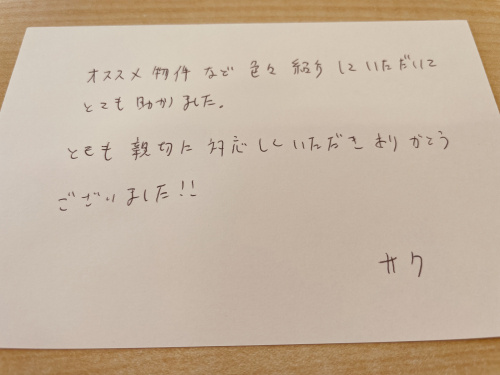 オススメ物件など色々紹介していただいて
とても助かりました。
とても親切に対応していただきありがとう
ございました!!
サク